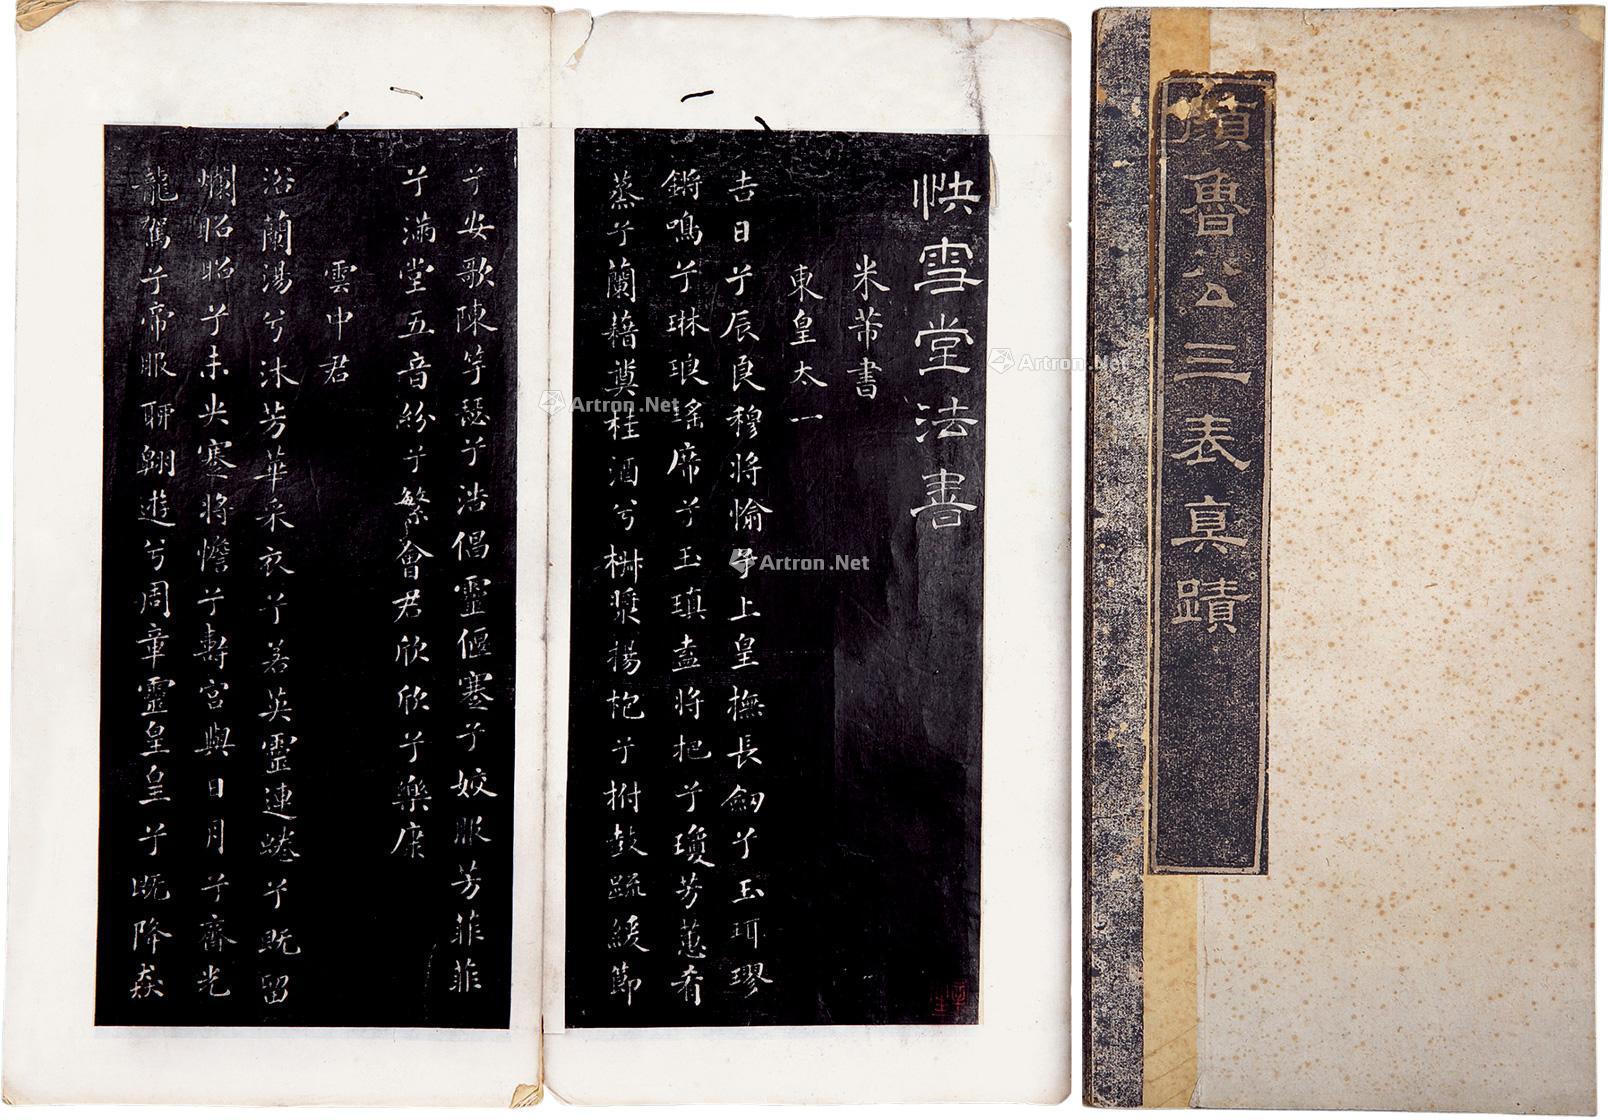 顏魯公三表真蹟
快雪堂法書
米芾書
東皇太一
吉日兮辰良穆將愉兮上皇撫長劒兮玉珥璆
鏘鳴兮琳琅瑤席兮玉瑱盍將把兮瓊芳蕙肴
蒸兮蘭藉奠桂酒兮椒漿揚枹兮拊鼓疏緩節
兮安歌陳竽瑟兮浩倡靈偃蹇兮姣服芳菲菲
兮滿堂五音紛兮繁會君欣欣兮樂康
雲中君
浴蘭湯兮沐芳華采衣兮若英靈連蜷兮既留
爛昭昭兮未央蹇將憺兮壽宮與日月兮齊光
龍駕兮帝服聊翱遊兮周章靈皇皇兮既降猋
Artron.Net
Artron.Net
Artron.Net